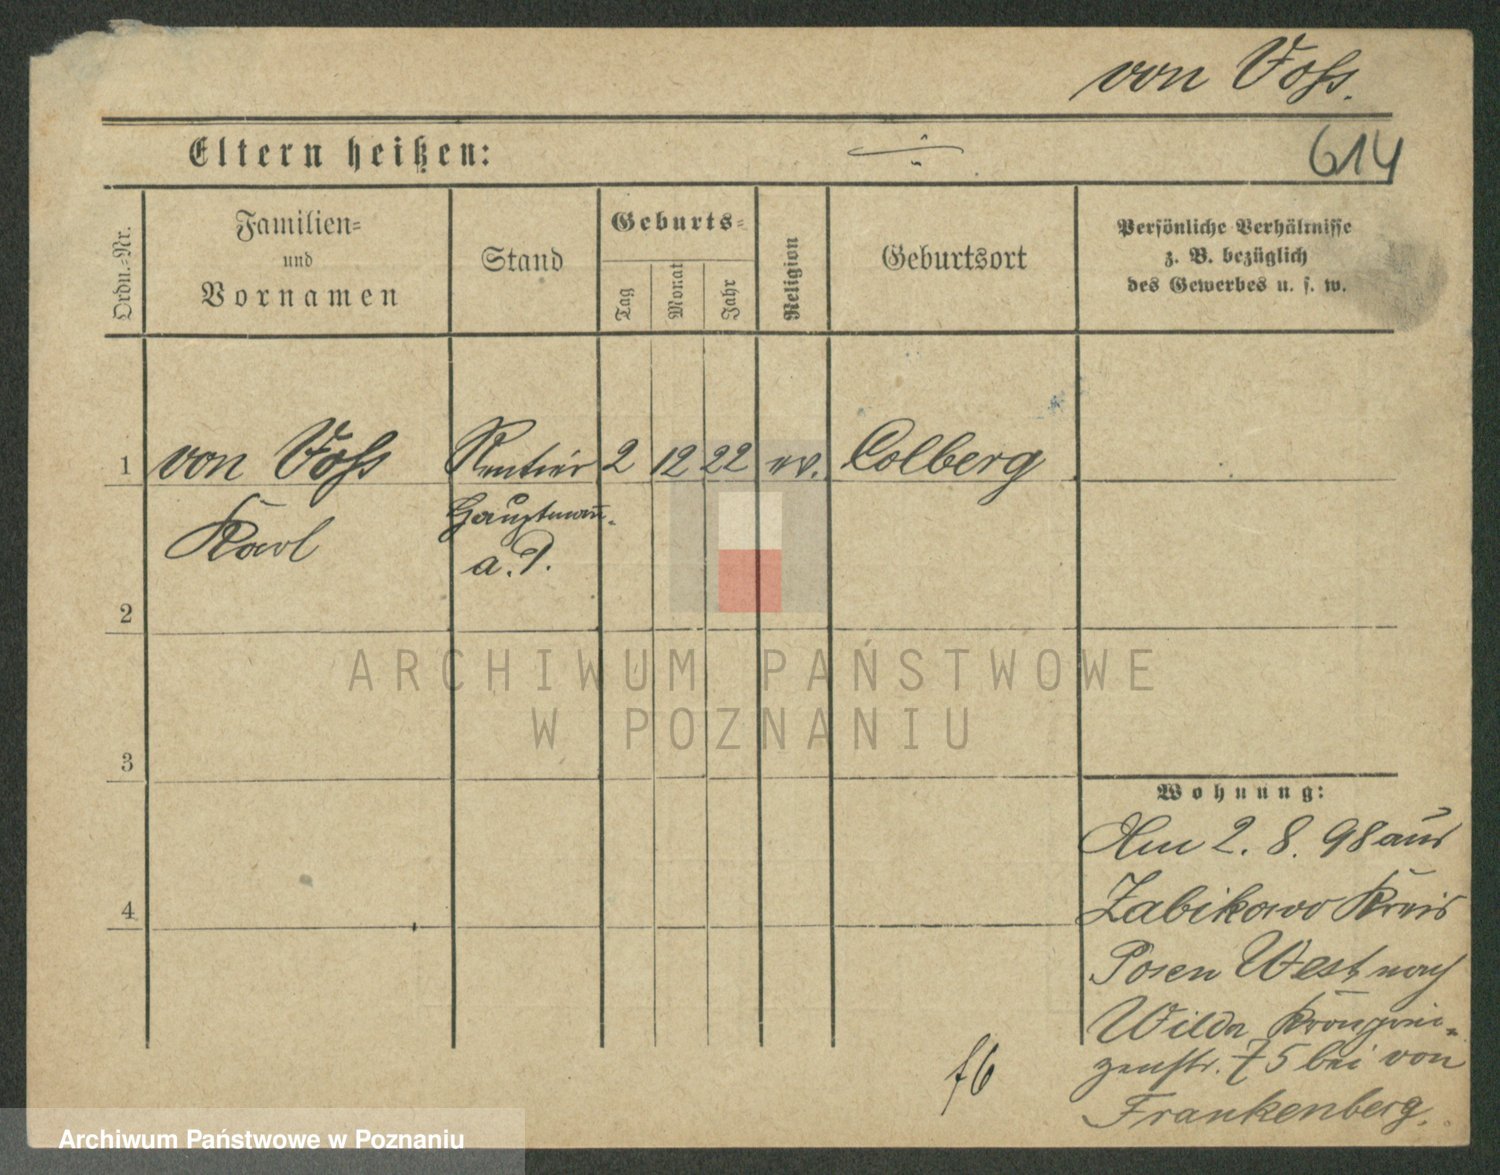 von Voß.
Eltern heißen:
614
Ordn.-Nr.
Familien-
und
Vornamen
Stand
Geburts-
Tag
Monat
Jahr
Religion
Geburtsort
Persönliche Verhältnisse
z. B. bezüglich
des Gewerbes u. s. w.
1 von Voß Rentier 2 12 22 ev. Colberg
Karl Hauptmann
a. D.
2
3
4
ARCHIWUM PAŃSTWOWE
W POZNANIU
Wohnung:
Am 2. 8. 98 aus
Zabikowo Kreis
Posen West nach
Wilda Kronprin-
zenstr. 75 bei von
Frankenberg.
f6
Archiwum Państwowe w Poznaniu